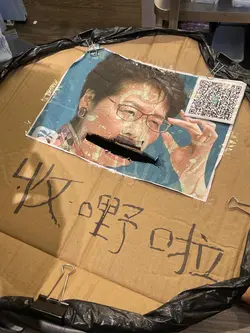 收嘢啦